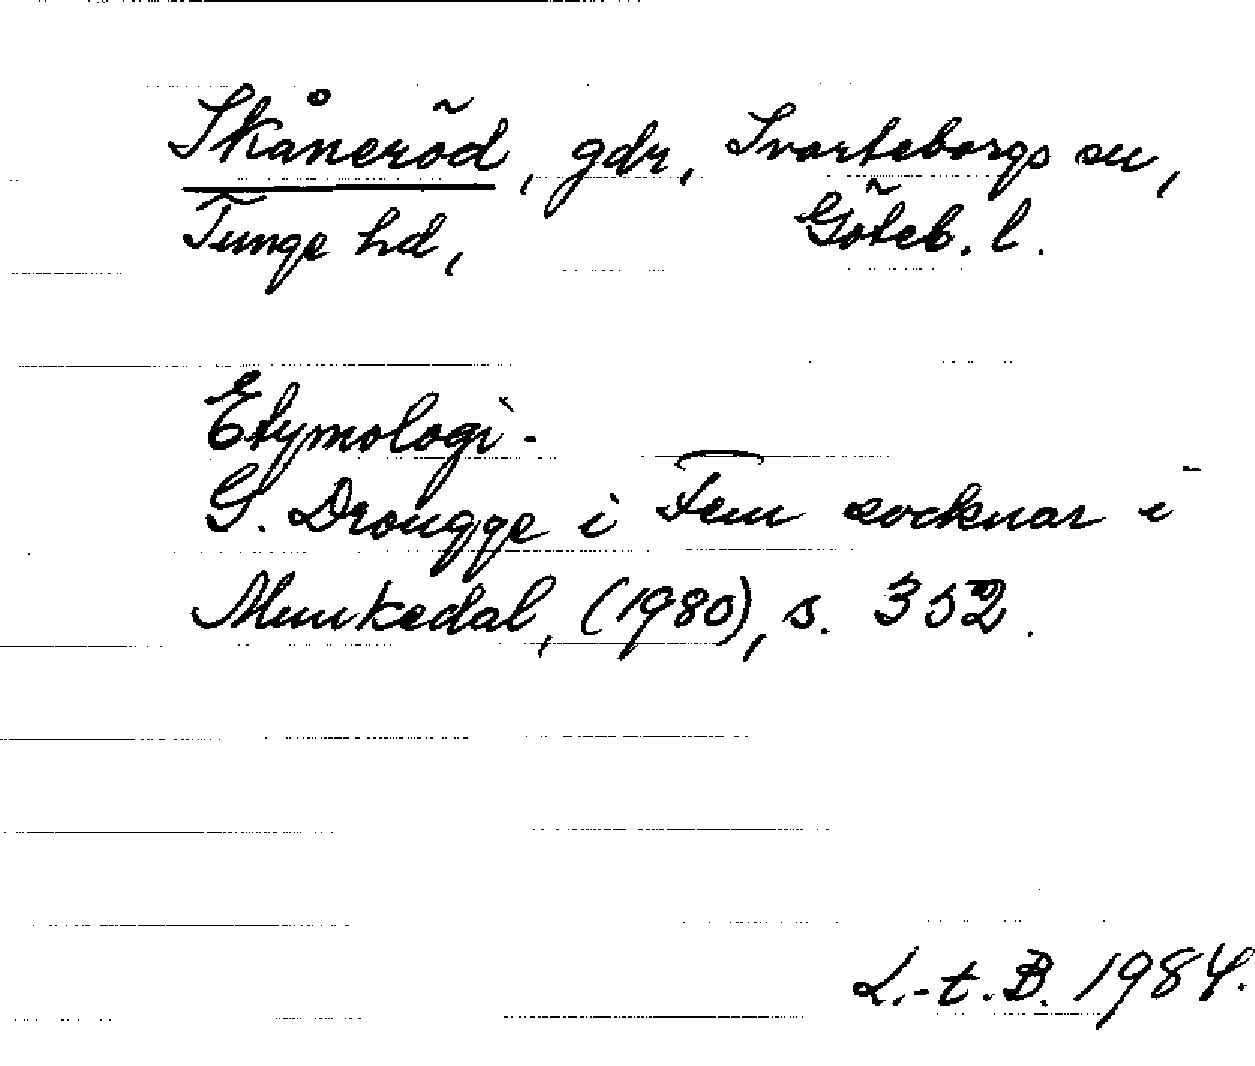 Skåneröd, gdr, Svarteborgs sn,
Tunge hd, Göteb. l.
Etymologi.
G. Drougge i Fem socknar i
Munkedal, (1980), s. 352.
L.-t. B. 1984.